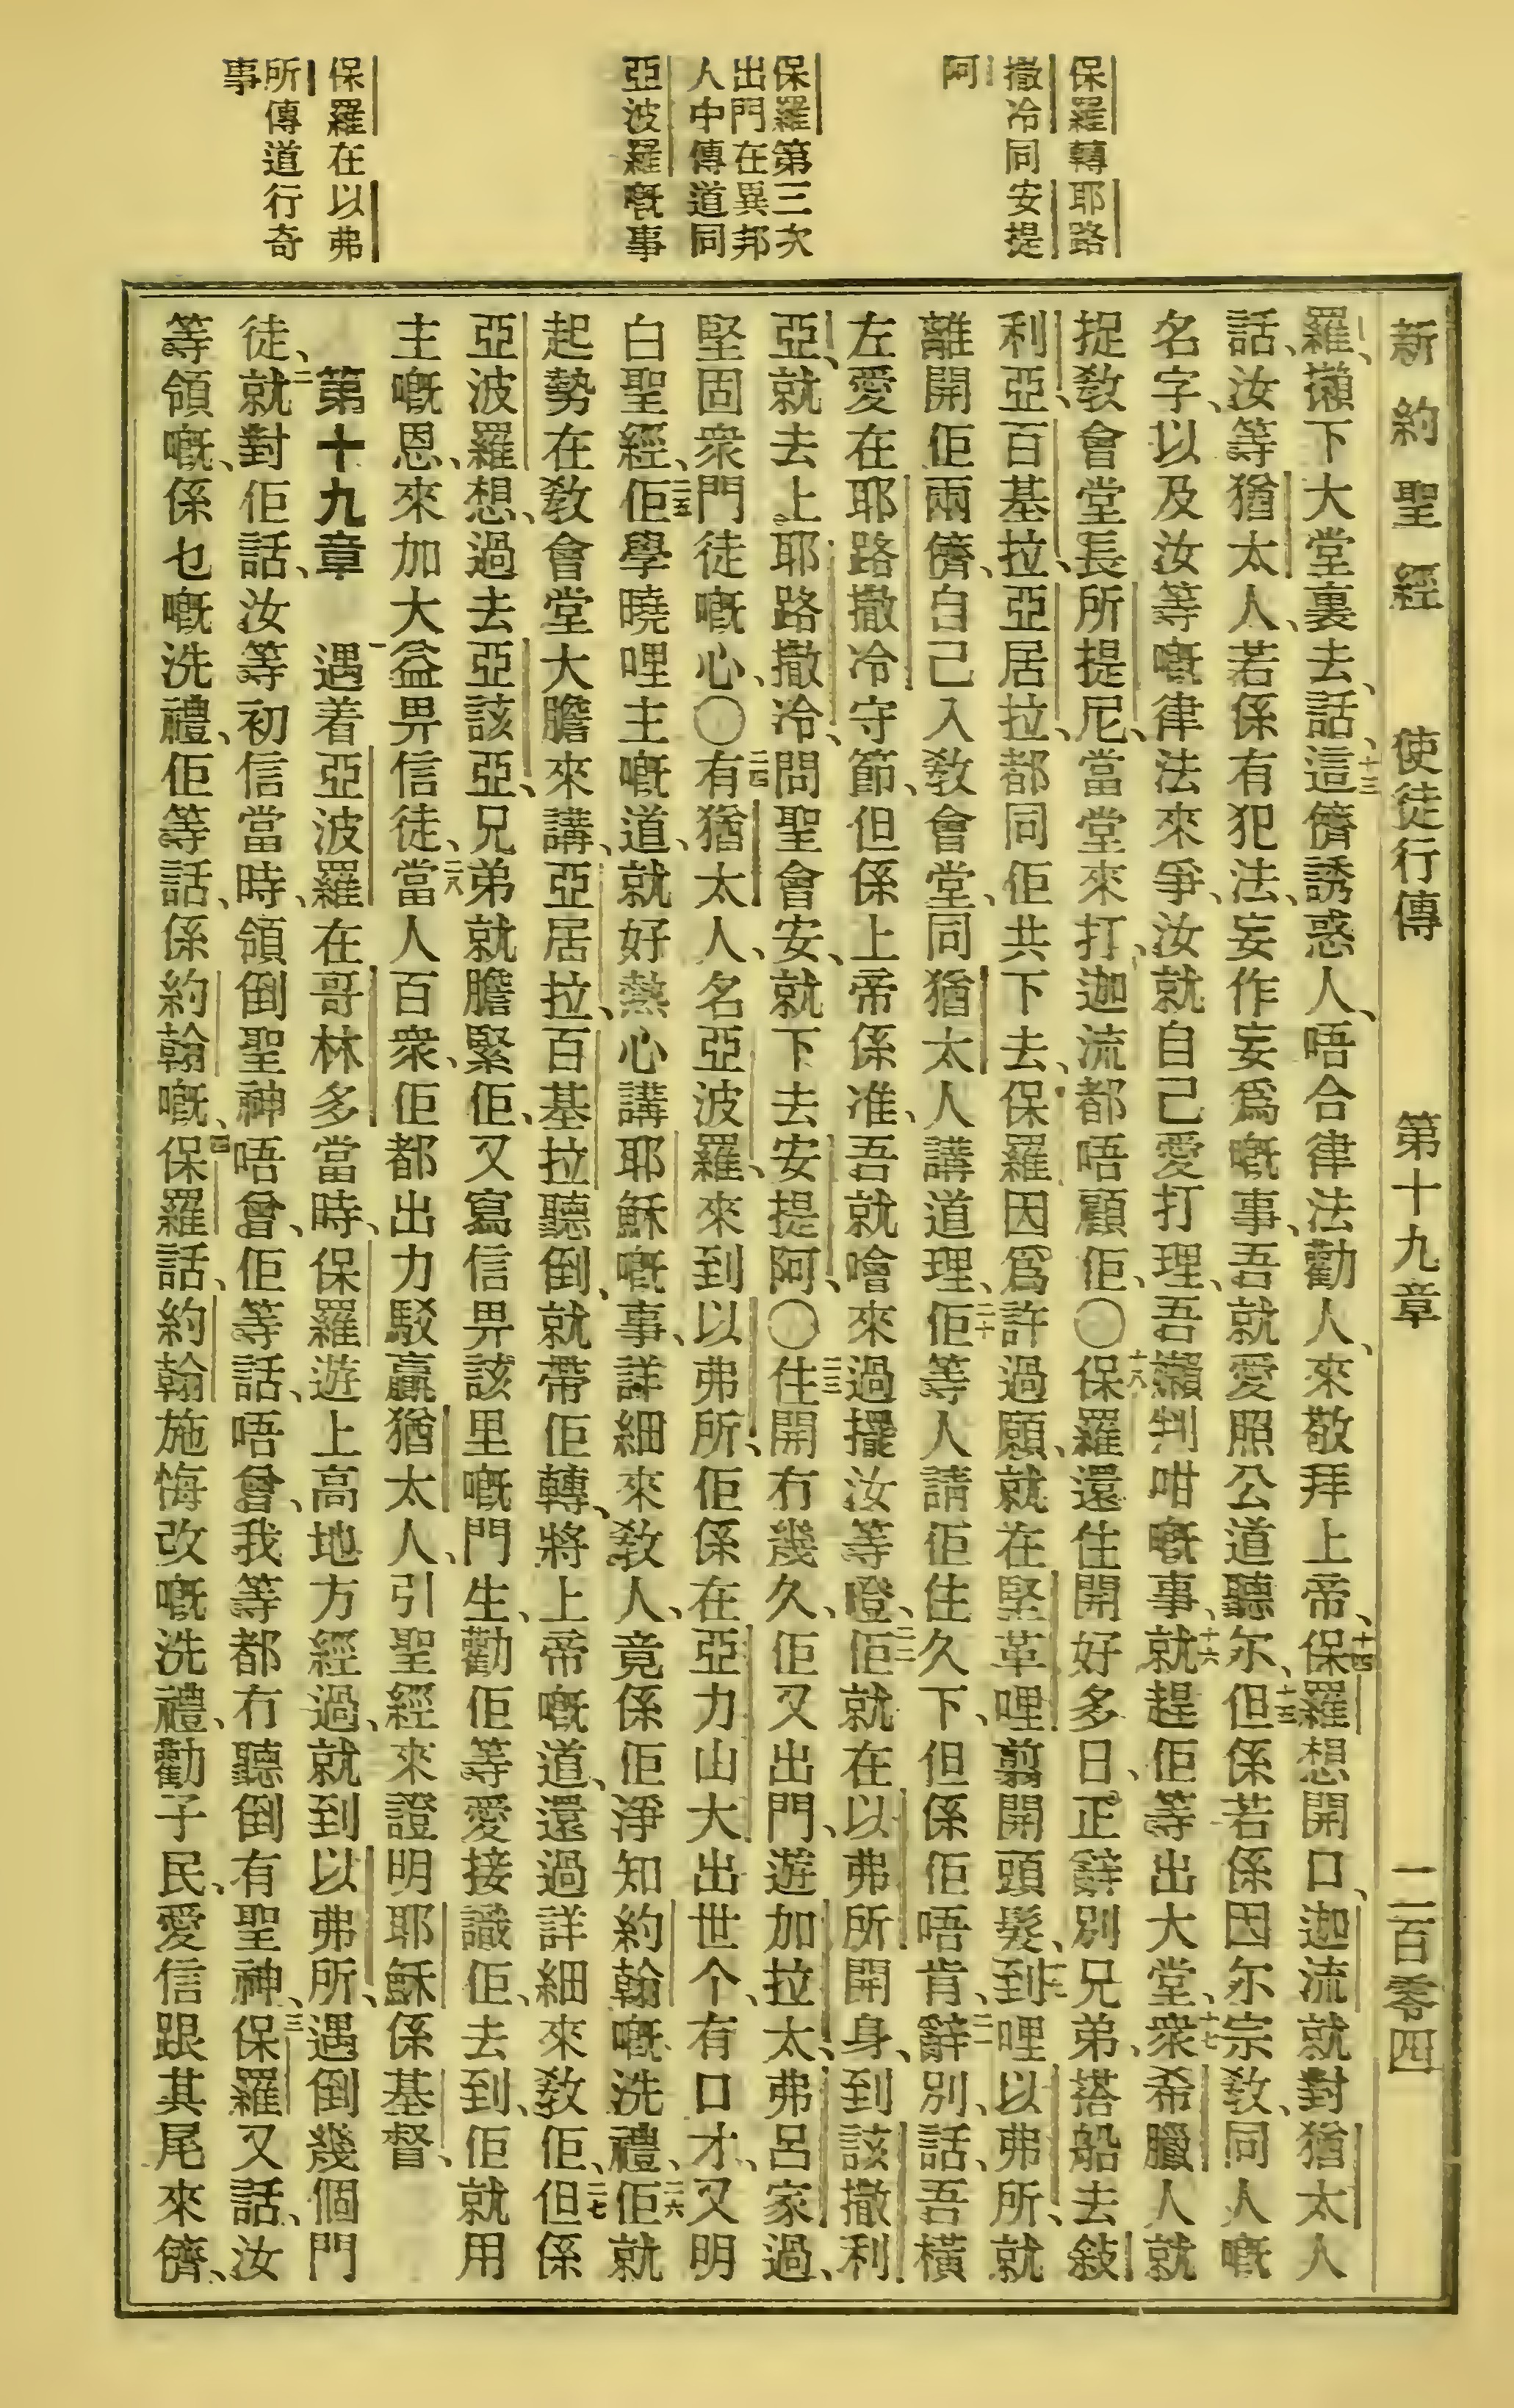 新約聖經 使徒行傳 第十九章 二百零四
保羅轉耶路
撒冷同安提
阿
保羅第三次
出門在異邦
人中傳道同
亞波羅嘅事
保羅在以弗
所傳道行奇
事
羅、攋下大堂裏去、話、十三這儕誘惑人、唔合律法勸人、來敬拜上帝、十四保羅想開口、迦流就對猶太人
話、汝等猶太人、若係有犯法、妄作妄爲嘅事、吾就愛照公道聽尔、十五但係若係因尔宗敎、同人嘅
名字、以及汝等嘅律法來爭、汝就自己愛打理、吾懶判咁嘅事、十六就趕佢等出大堂、十七衆希臘人就
捉敎會堂長所提尼、當堂來打、迦流都唔顧佢、〇十八保羅還住開好多日、正辭別兄弟、搭船去敍
利亞、百基拉、亞居拉、都同佢共下去、保羅因爲許過願、就在堅革哩翦開頭髮、十九到哩以弗所、就
離開佢兩儕、自己入敎會堂、同猶太人講道理、二十佢等人請佢住久下、但係佢唔肯、二一辭別、話、吾橫
左愛在耶路撒冷守節、但係上帝係准、吾就噲來過擺汝等噔、二二佢就在以弗所開身、到該撒利
亞、就去上耶路撒冷、問聖會安、就下去安提阿、〇二三住開冇幾久、佢又出門、遊加拉太、弗呂家過、
堅固衆門徒嘅心、〇二四有猶太人、名亞波羅、來到以弗所、佢係在亞力山大出世个、有口才、又明
白聖經、二五佢學曉哩主嘅道、就好熱心講耶穌嘅事、詳細來敎人、竟係佢淨知約翰嘅洗禮、二六佢就
起勢在敎會堂大膽來講、亞居拉、百基拉聽倒、就帶佢轉、將上帝嘅道、還過詳細來敎佢、二七但係
亞波羅想、過去亞該亞、兄弟就膽緊佢、又寫信畀該里嘅門生、勸佢等愛接識佢、去到、佢就用
主嘅恩、來加大益畀信徒、二八當人百衆、佢都出力駁贏猶太人、引聖經來證明耶穌係基督、
第十九章 一遇着亞波羅在哥林多當時、保羅遊上高地方經過、就到以弗所、遇倒幾個門
徒、二就對佢話、汝等初信當時、領倒聖神唔曾、佢等話、唔曾、我等都冇聽倒有聖神、三保羅又話、汝
等領嘅、係乜嘅洗禮、佢等話、係約翰嘅、四保羅話、約翰施悔改嘅洗禮、勸子民、愛信跟其尾來儕、